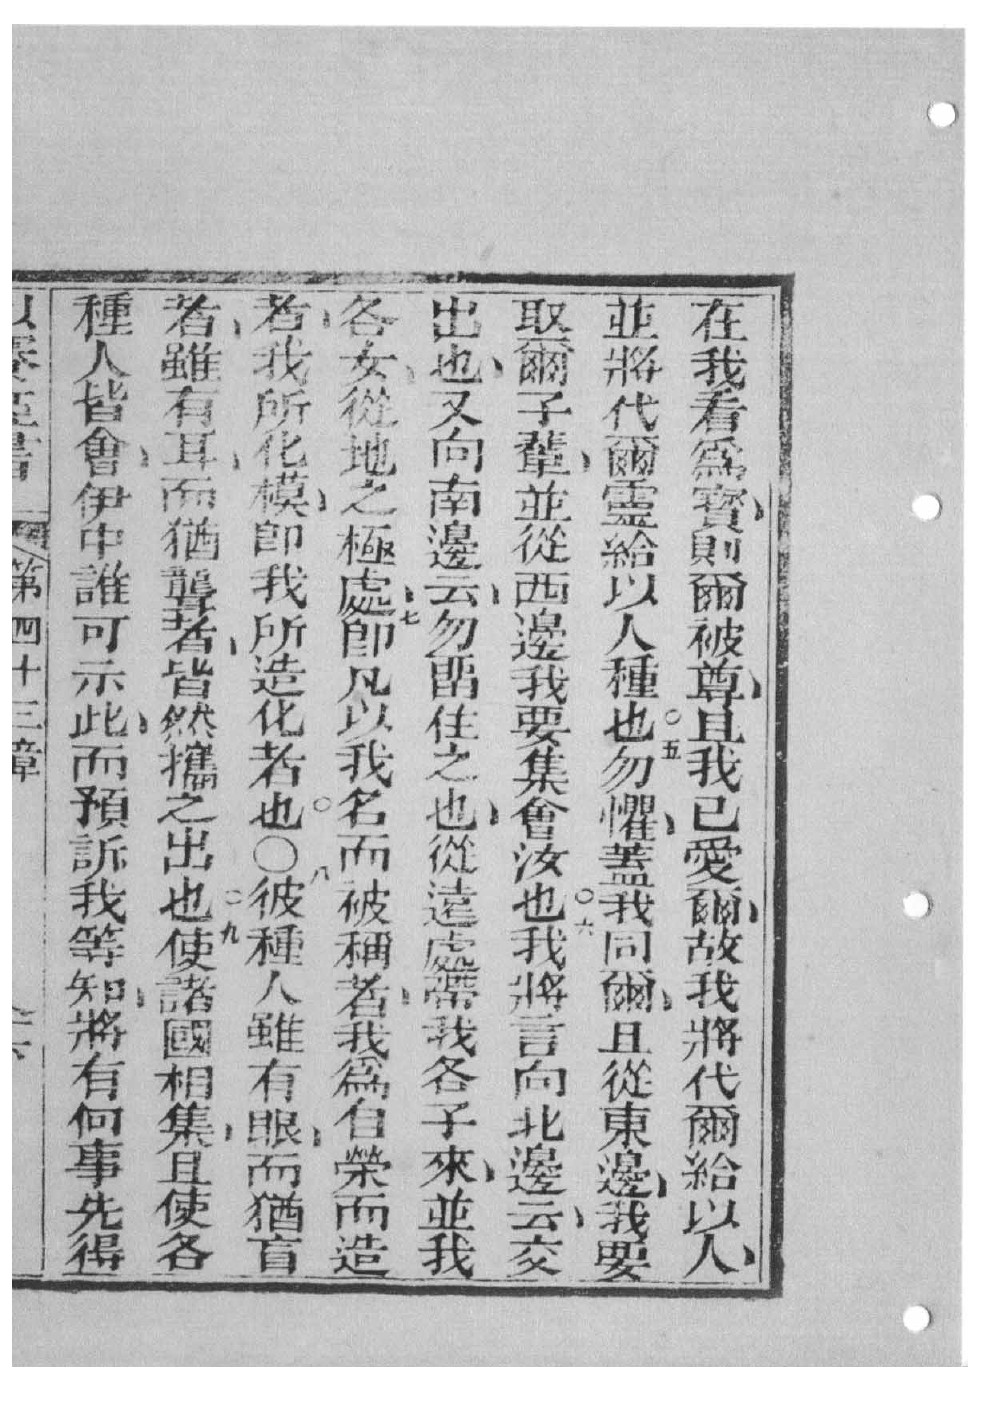 在我看爲寳則爾被尊且我已愛爾故我將代爾給以人
並將代爾靈給以人種也○五勿懼蓋我同爾且從東邊我要
取爾子輩並從西邊我要集會汝也○六我將言向北邊云交
出也又向南邊云勿畱住之也從遠處帶我各子來並我
各女從地之極處七即凡以我名而被稱者我爲自榮而造
者我所化模即我所造化者也○○八彼種人雖有眼而猶盲
者雖有耳而猶聾者皆然攜之出也○九使諸國相集且使各
種人皆會伊中誰可示此而預訴我等知將有何事先得
以賽亞書 第四十三章